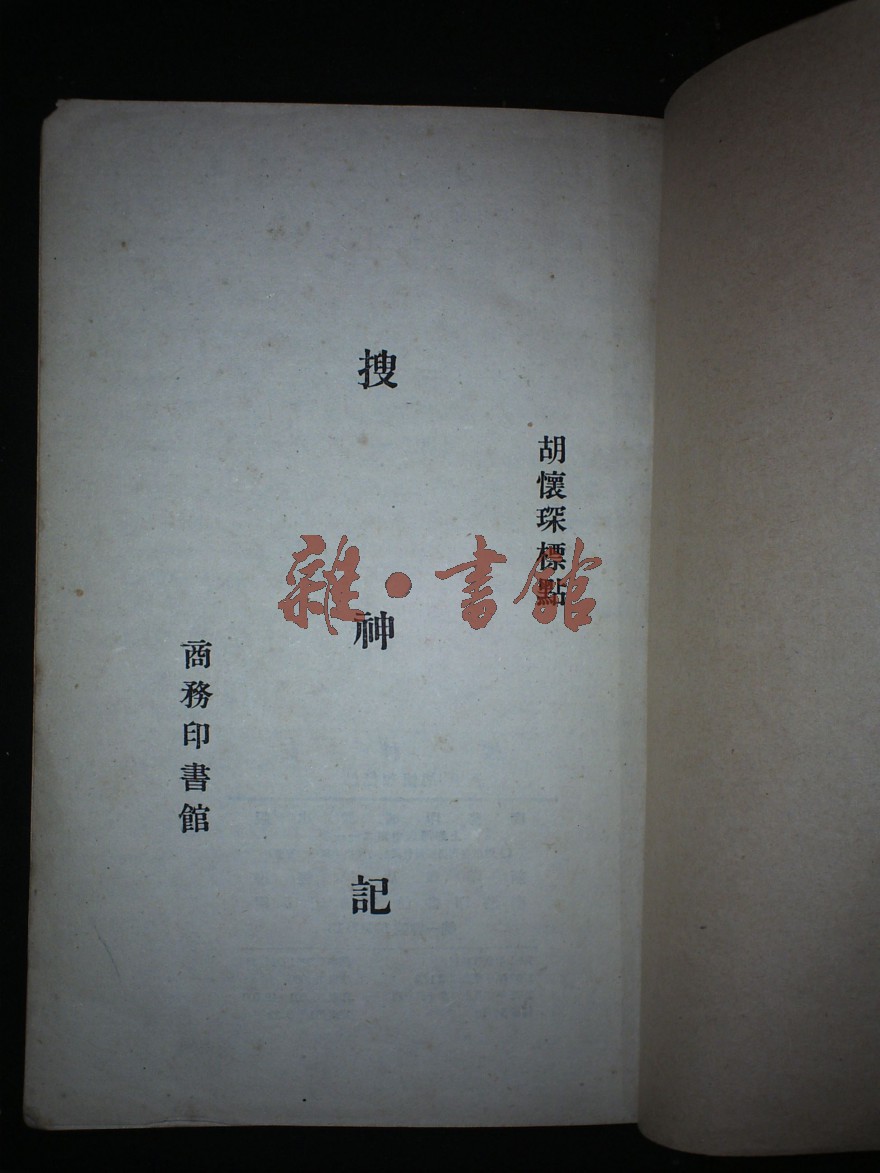 胡懷琛標點
搜神記
商務印書館
雜·書館